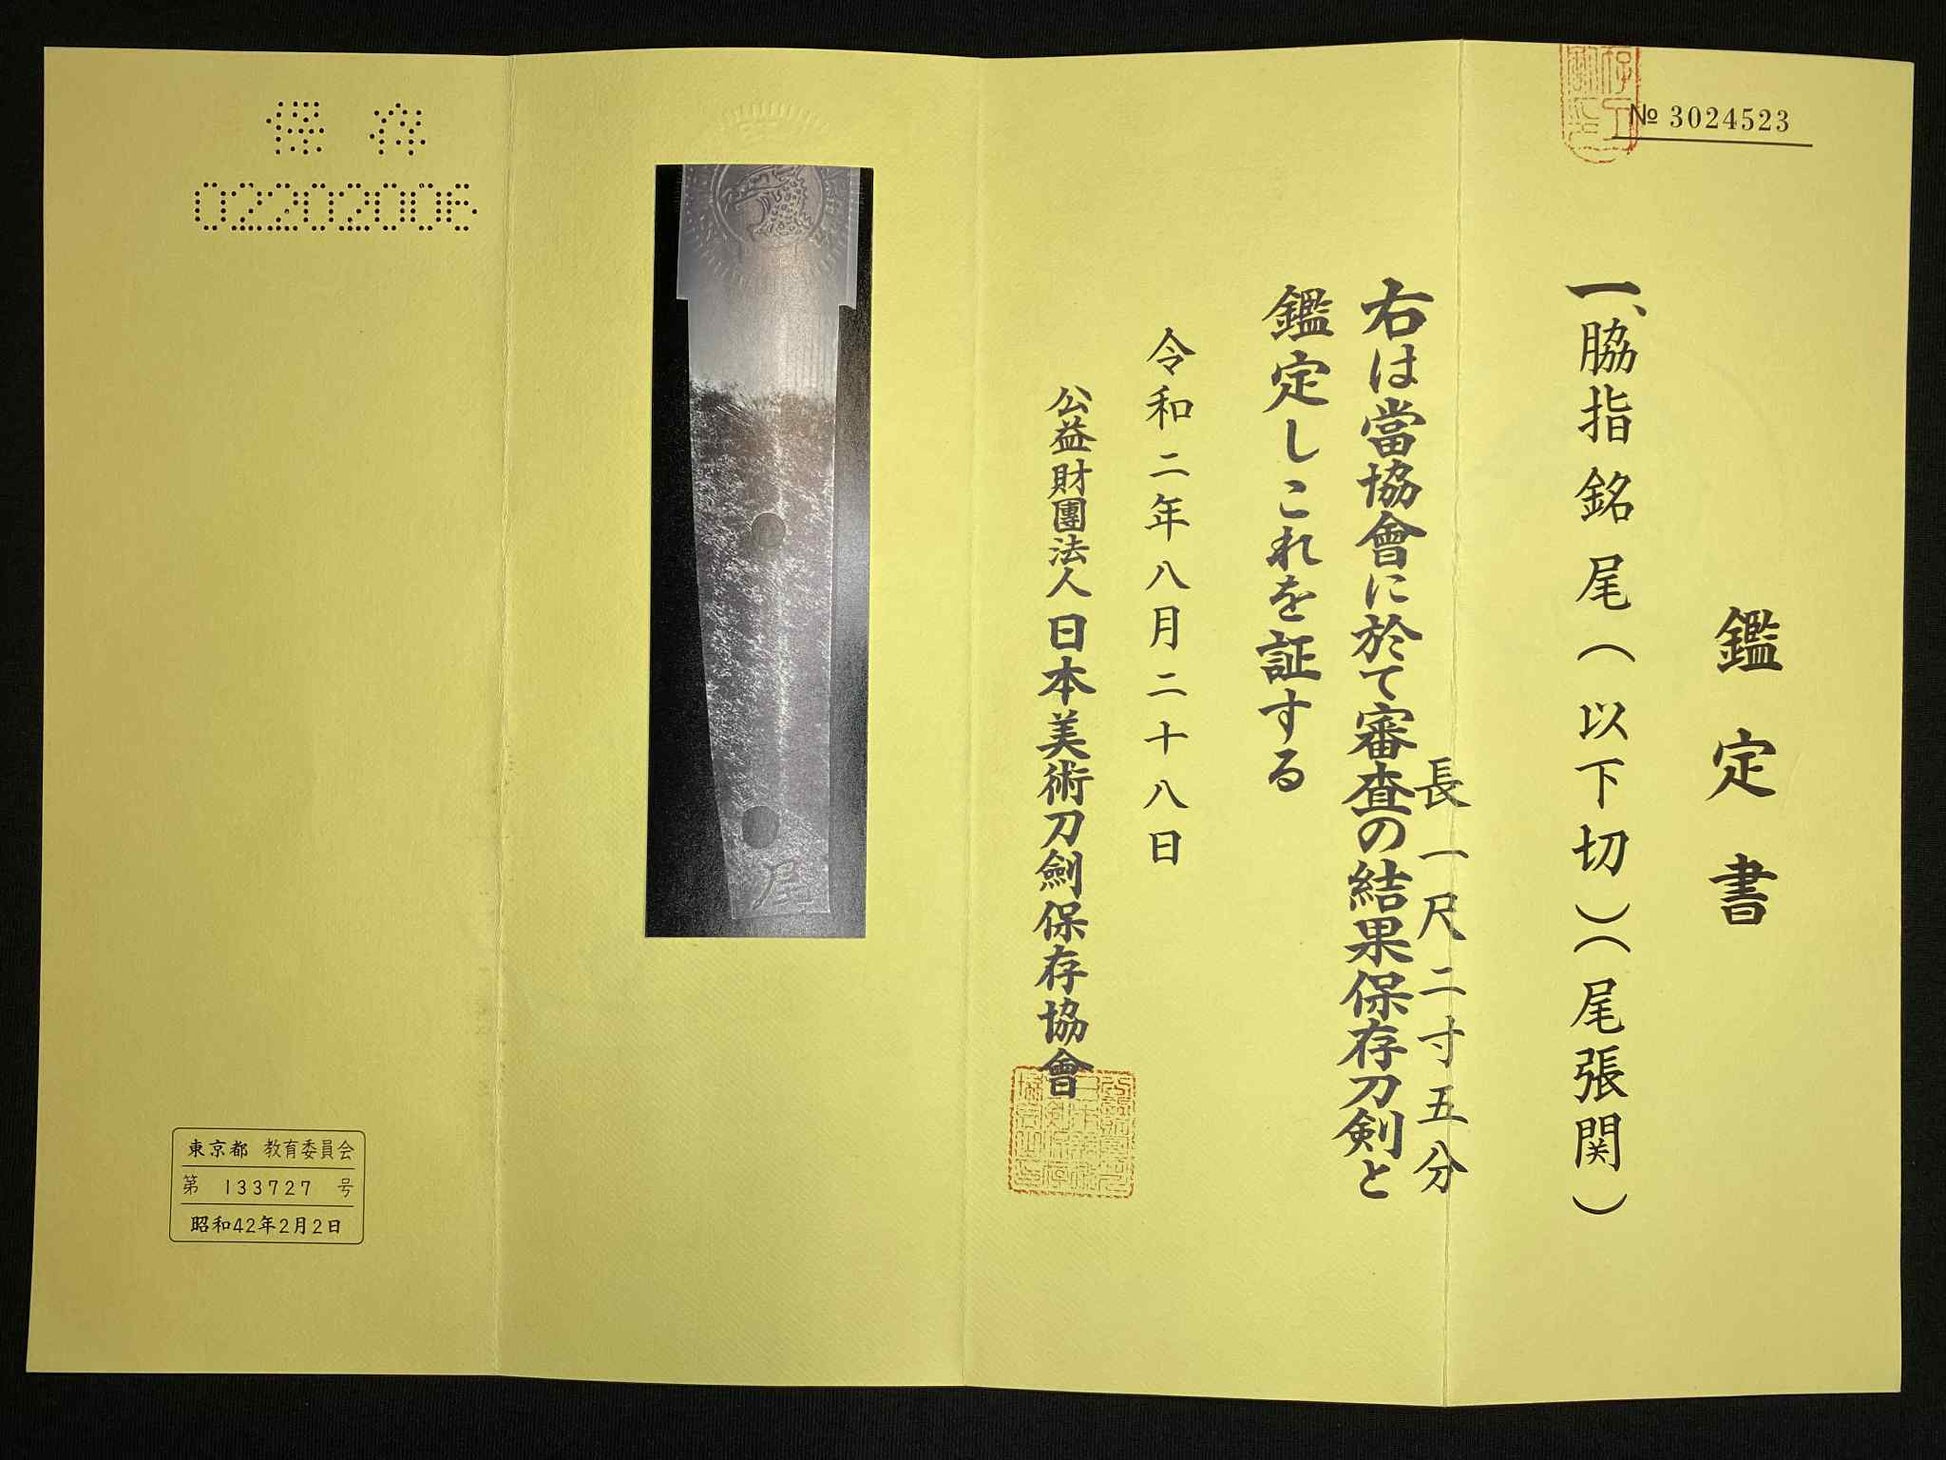 № 3024523
鑑定書
一、脇指 銘 尾(以下切)(尾張関)
長一尺二寸五分
右は當協會に於て審査の結果保存刀剣と
鑑定しこれを証する
令和二年八月二十八日
公益財團法人日本美術刀劍保存協會
尾
保存
02202006
東京都 教育委員会
第 133727 号
昭和42年2月2日